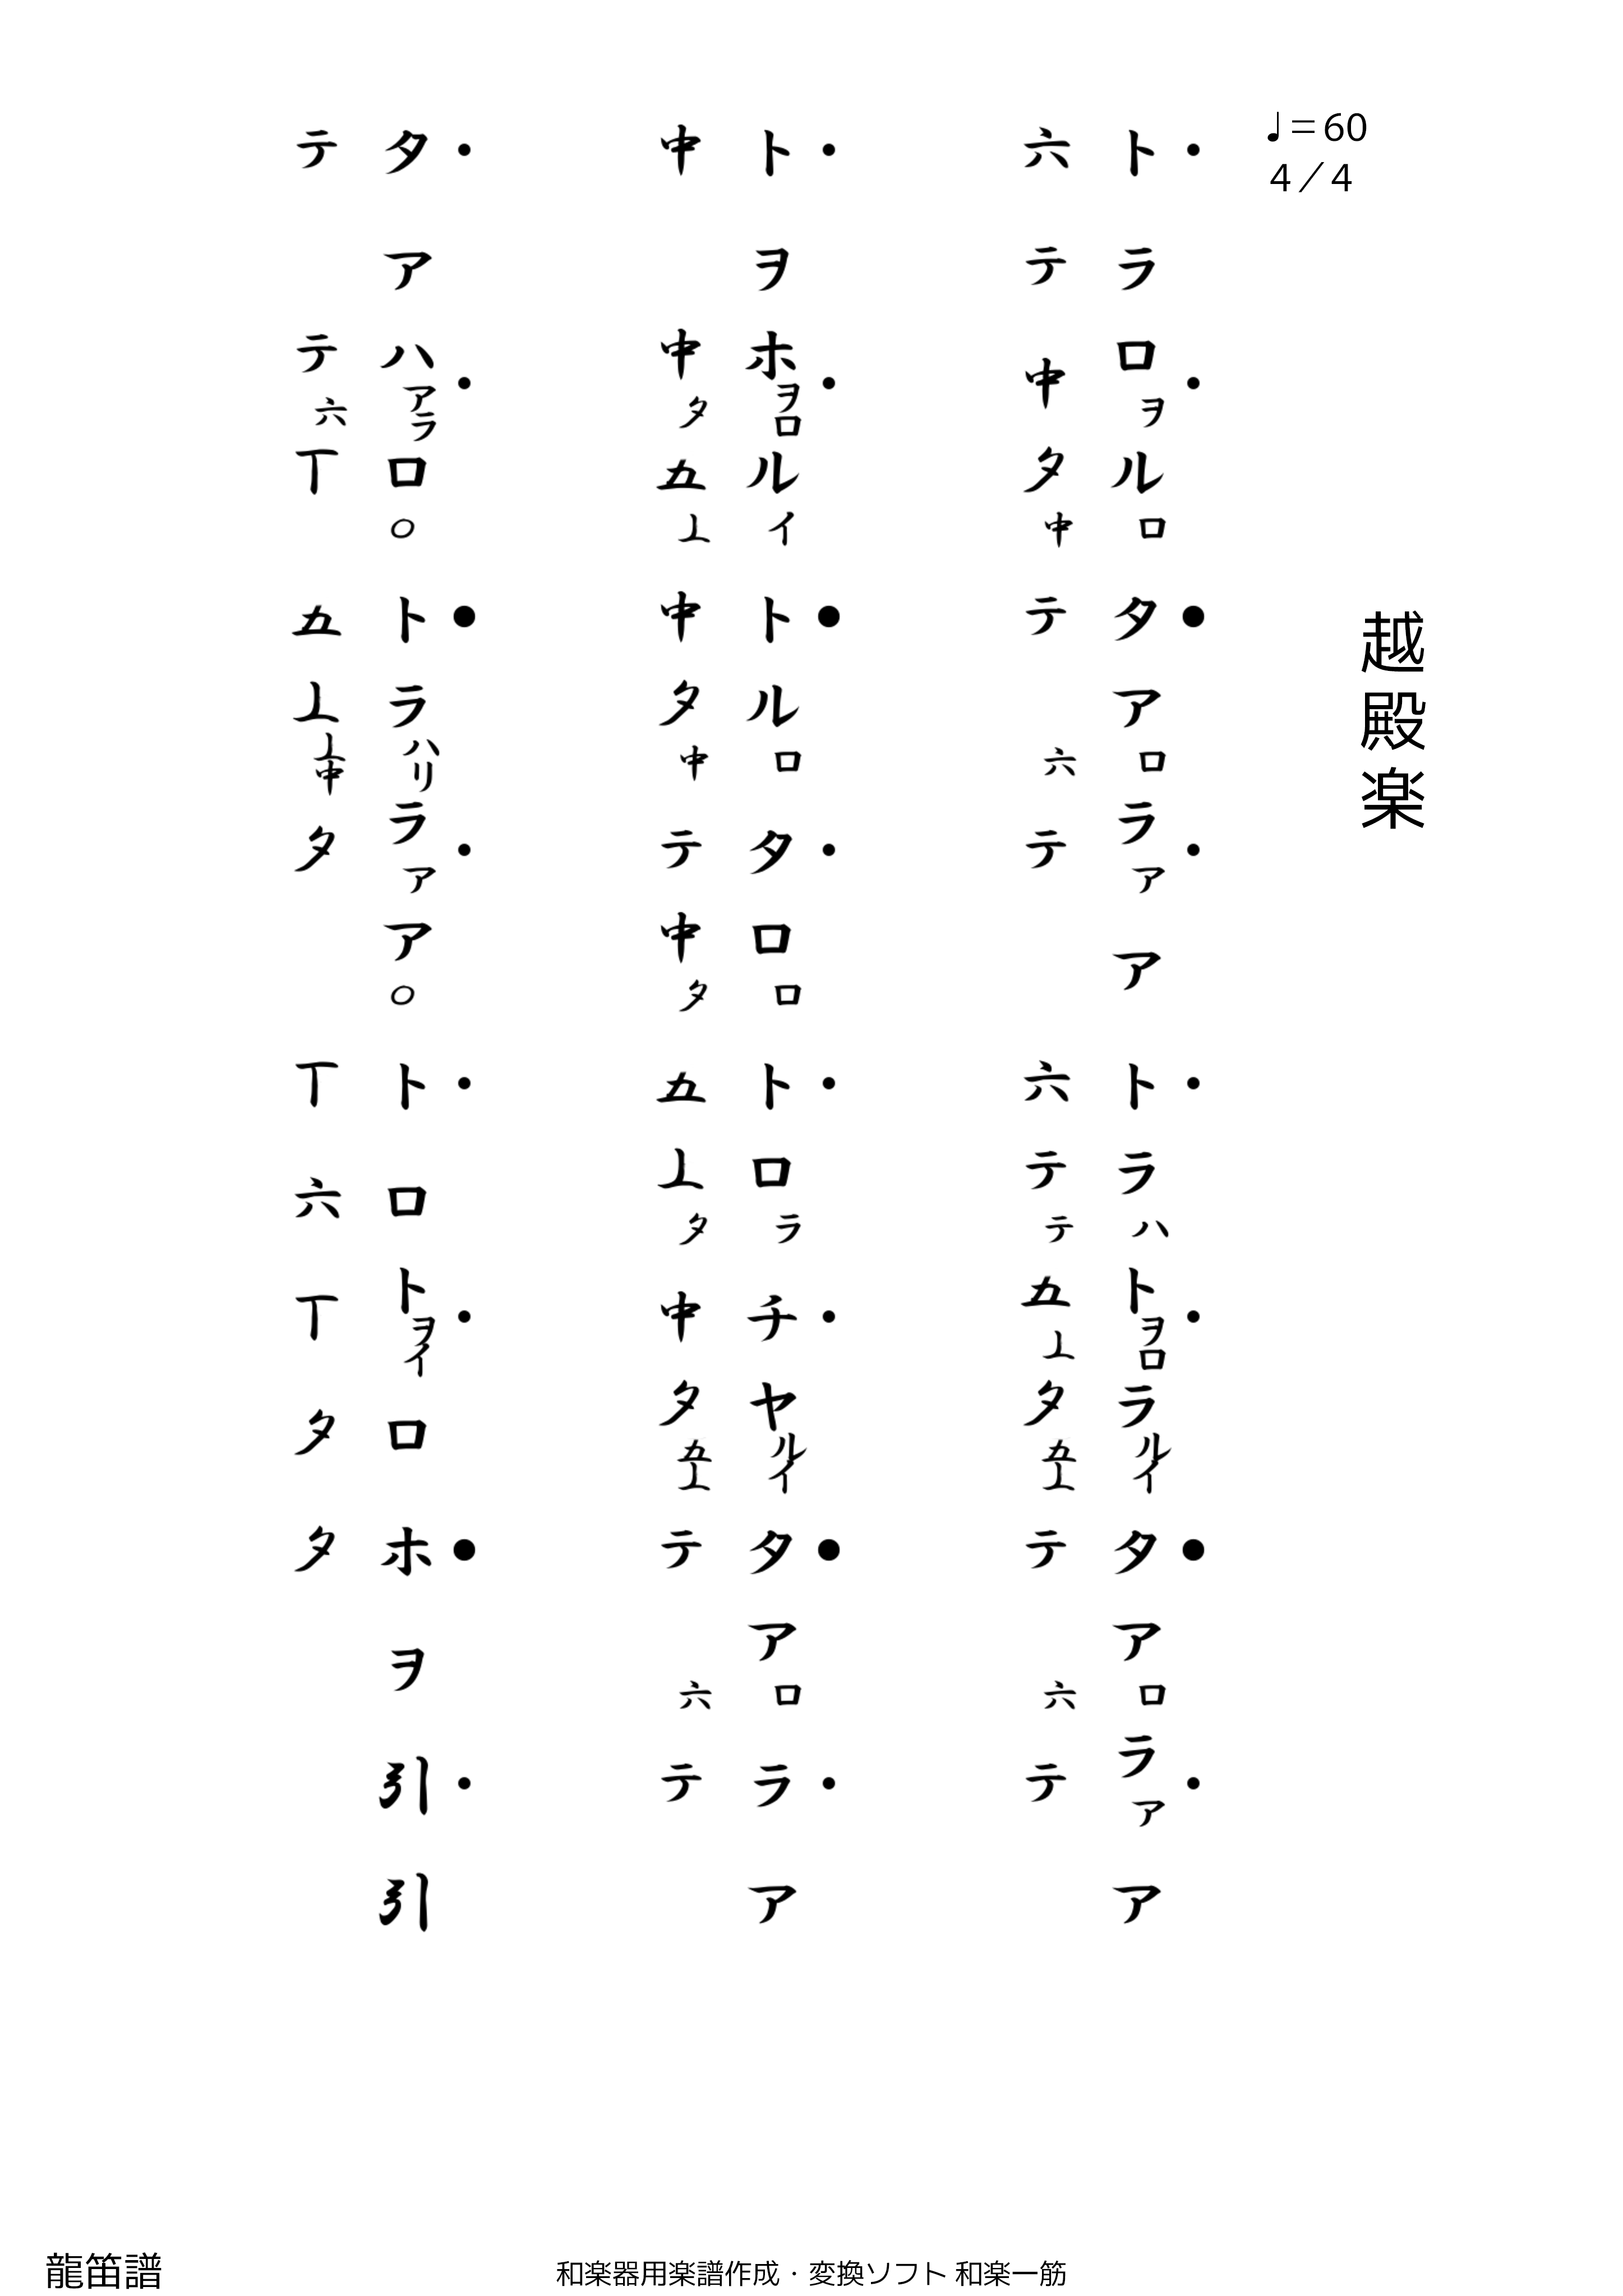 ♩＝60
4／4
越殿楽
・・●・・・●・
トラロヲルロタアロラアアトラハトヲロラルイタアロラアア
六テ中タ中テ六テ六テテ五丄タ五丄テ六テ
・・●・・・●・
トヲホヲロルイトルロタロロトロラチヤルイタアロラア
中中タ五丄中タ中テ中タ五丄タ中タ五丄テ六テ
・・●・・・●・
タアハアラロ○トラハリラアア○トロトヲイロホヲ引引
テテ六丅五丄丄中タ丅六丅タタ
龍笛譜
和楽器用楽譜作成・変換ソフト 和楽一筋